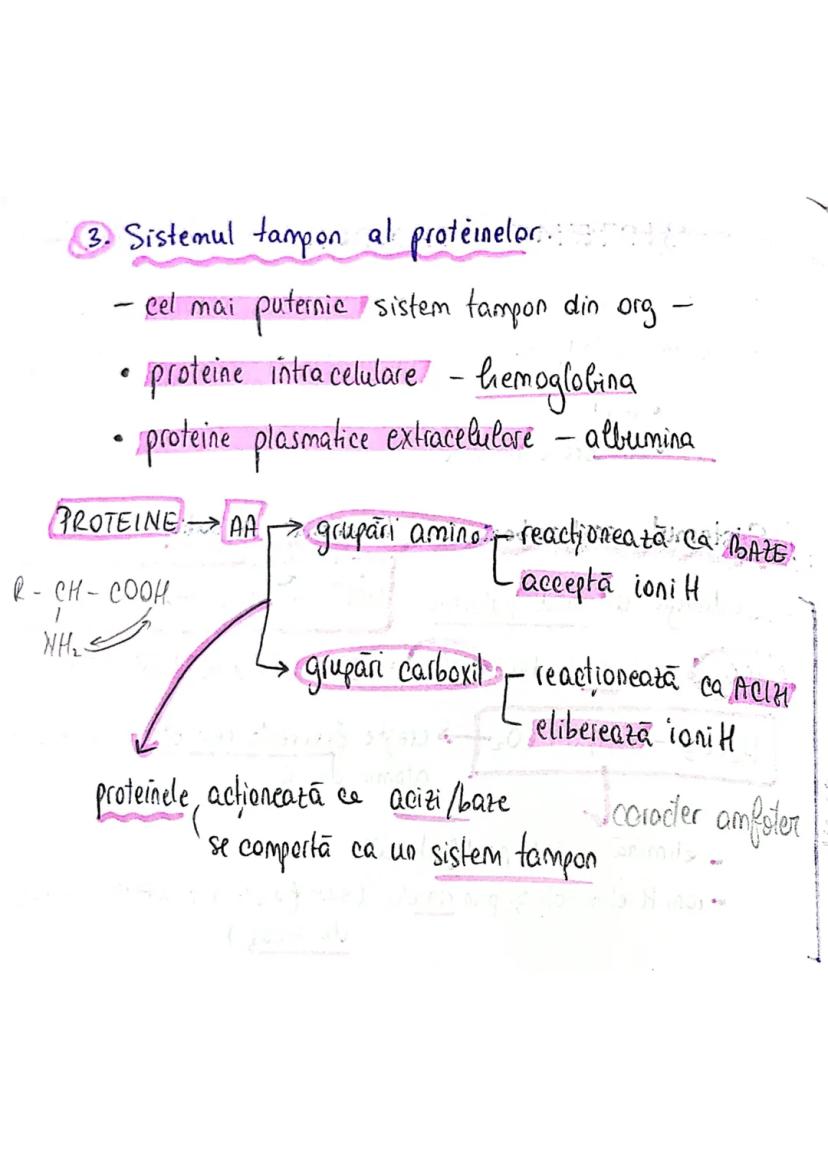 3. Sistemul tampon al proteinelor.
- cel mai puternic sistem tampon din org -
• proteine intracelulare - hemoglobina
• proteine plasmatice extracelulare - albumina
PROTEINE → AA → grupări amino reacționează ca BAZE
acceptă ioni H
R - CH - COOH
NH₂
grupări carboxil reacționează ca ACIZI
eliberează ioni H
proteinele acționează ca acizi/baze
caracter amfoter
se comportă ca un sistem tampon